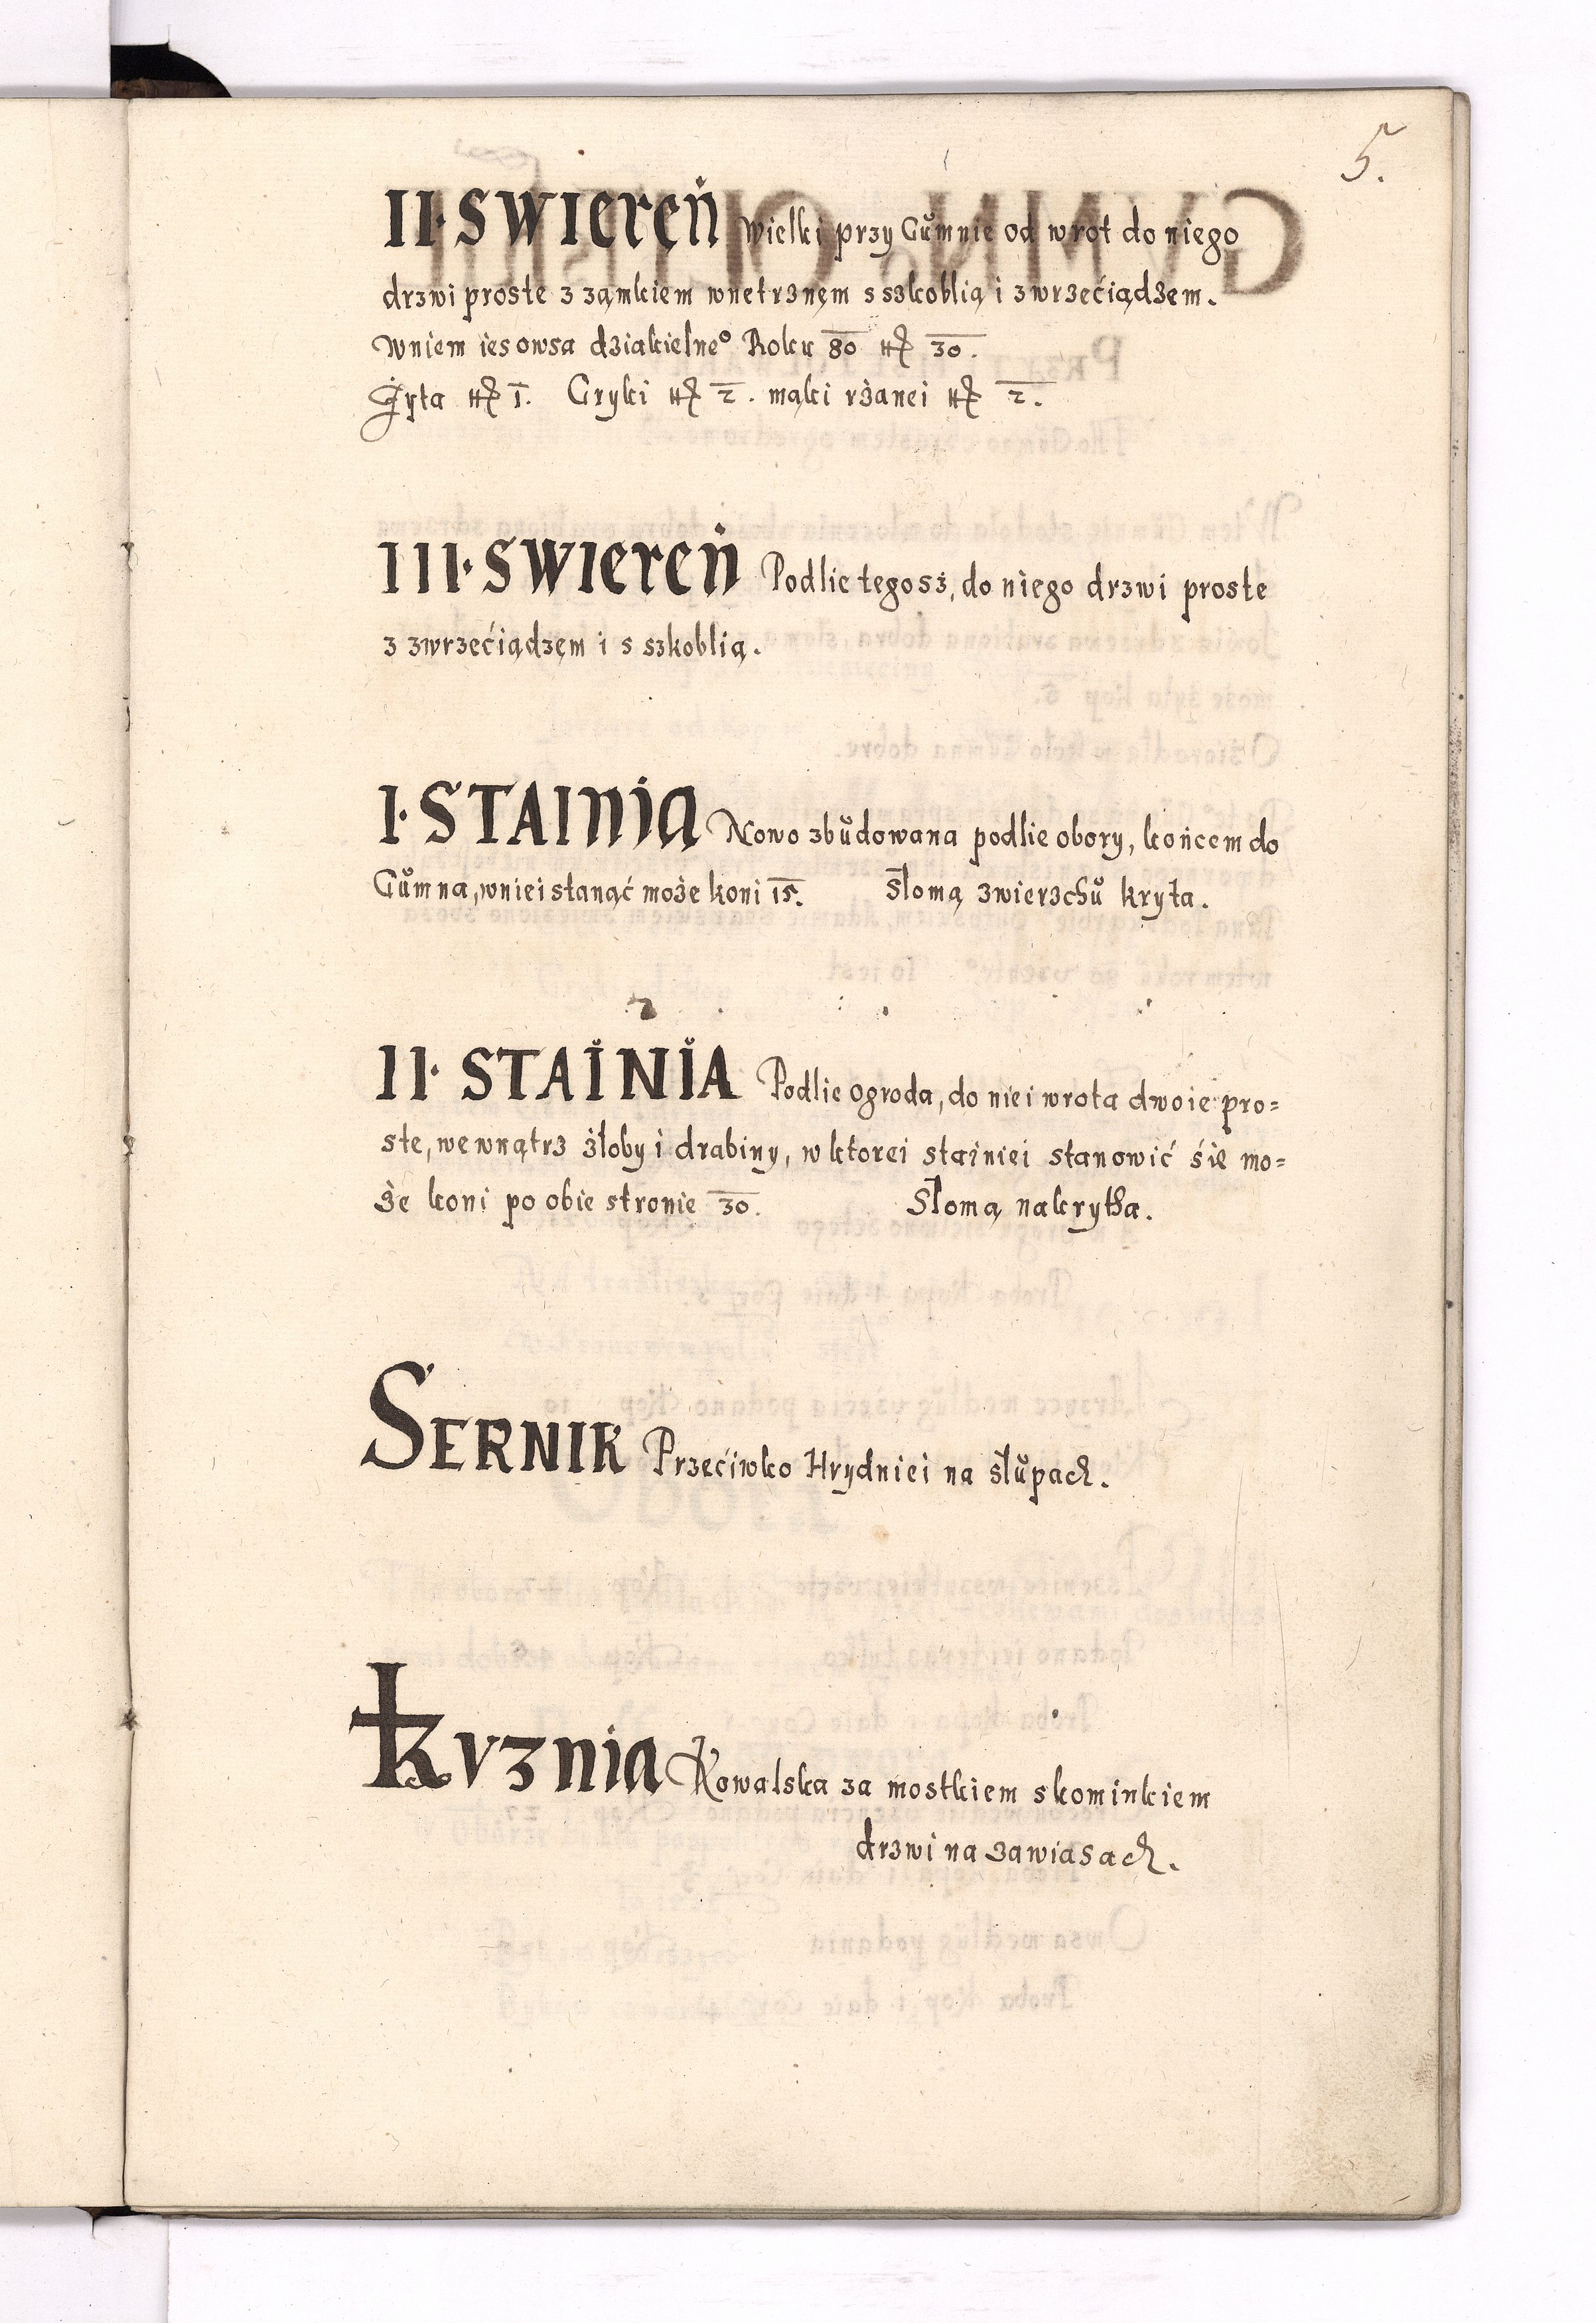 5.
II. SWIEREŃ Wielki przy Gůmnie od wrot do niego
drzwi proste z zamkiem wnetrznęm s szkoblią i zwrzećiądzem.
Wniem ies owsa dziakielne° Roku 80 30.
Żyta 1. Gryki 2. mąki rżanei 2.
III. SWIEREŃ Podlie tegosż, do niego drzwi proste
z zwrzećiądzęm i s szkoblią.
I. STAINIA Nowo zbůdowana podlie obory, końcem do
Gůmna, wniei stanąć może koni 15. Słomą zwierzchů kryta.
II. STAINIA Podlie ogroda, do niei wrota dwoie pro=
ste, wewnątrz żłoby i drabiny, w ktorei stainiei stanowić śie mo=
że koni po obie stronie 30. Słomą nakryta.
SERNIK Przećiwko Hrydniei na słůpach.
KVZNIA Kowalska za mostkiem s kominkiem
drzwi na zawiasach.